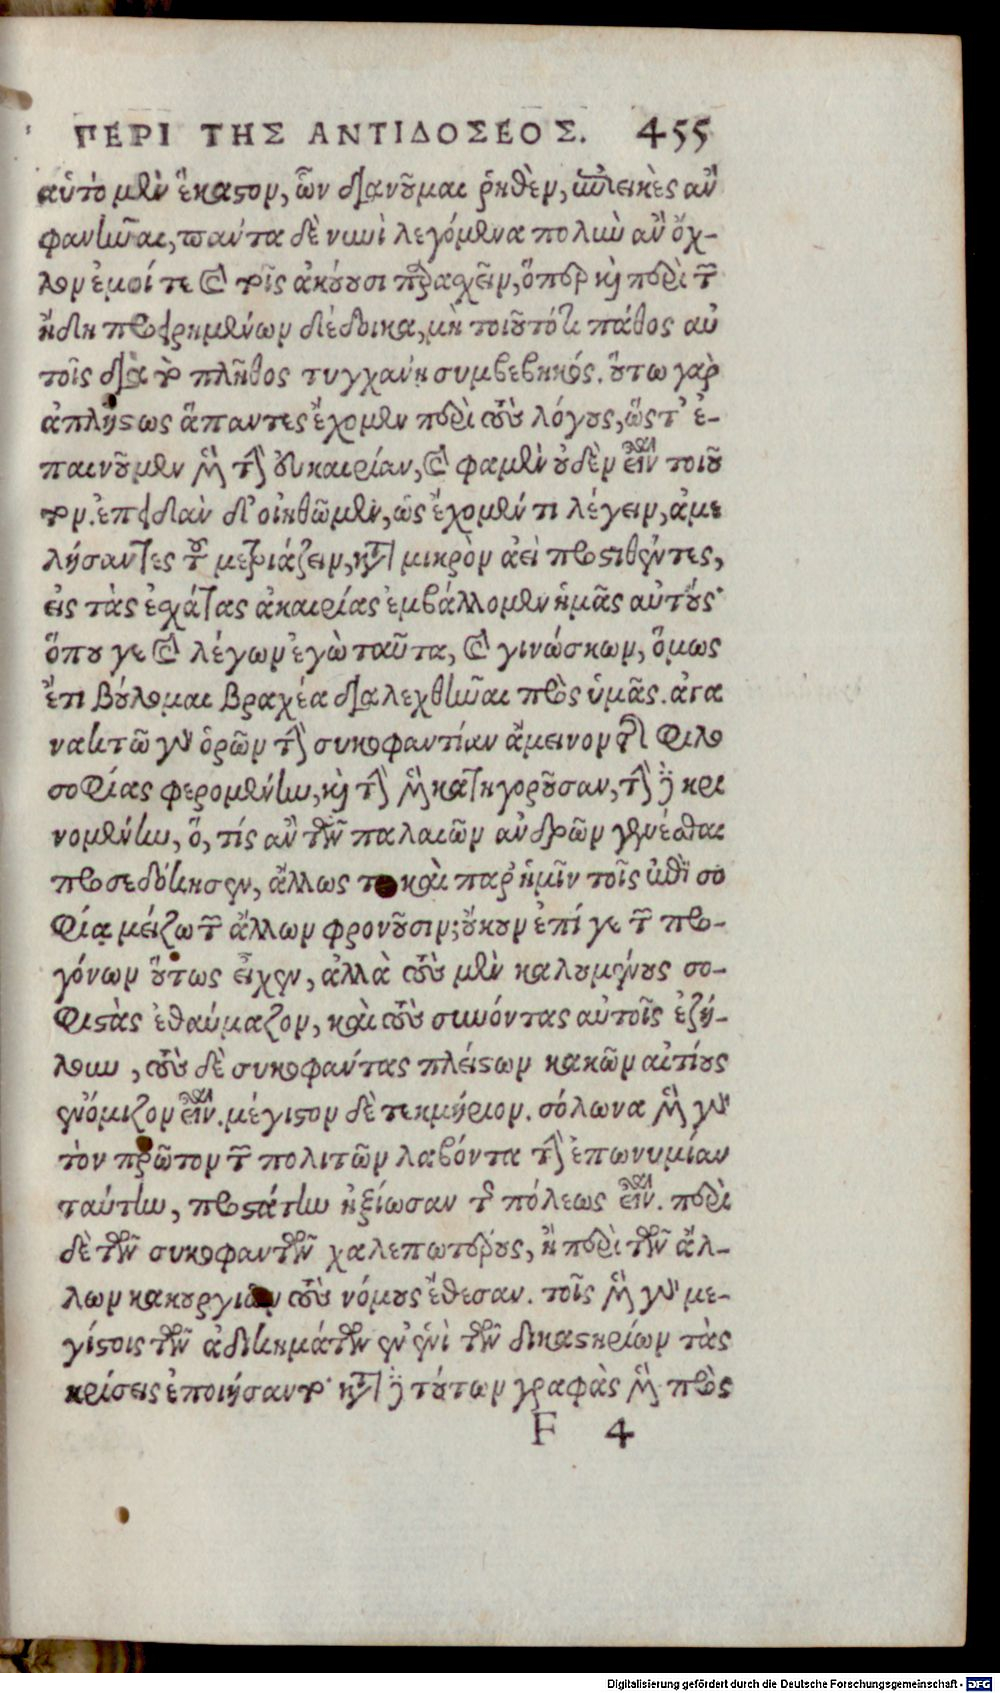 ΠΕΡΙ ΤΗΣ ΑΝΤΙΔΟΣΕΟΣ. 455
αὑτὸ μὲν ἕκαστον, ὧν διανοῦμαι ῥηθὲν, ἐπιεικὲς ἂν
φανῆναι, πάντα δὲ νυνὶ λεγόμενα πολὺν ἂν ὄχ-
λον ἐμοί τε καὶ τοῖς ἀκούουσι παραχεῖν, ὅπερ καὶ περὶ τῶν
ἤδη προειρημένων δέδοικα, μὴ τοιοῦτόν τι πάθος αὐ
τοῖς διὰ τὸ πλῆθος τυγχάνῃ συμβεβηκός. οὕτω γὰρ
ἀπλήστως ἅπαντες ἔχομεν περὶ τοὺς λόγους, ὥστ' ἐ-
παινοῦμεν μὲν τὴν εὐκαιρίαν, καὶ φαμὲν οὐδὲν εἶναι τοιοῦ
τον. ἐπειδὰν δ' οἰηθῶμεν, ὡς ἔχομέν τι λέγειν, ἀμε
λήσαντες τοῦ μετριάζειν, κατὰ μικρὸν ἀεὶ προστιθέντες,
εἰς τὰς ἐσχάτας ἀκαιρίας ἐμβάλλομεν ἡμᾶς αὐτούς·
ὅπου γε καὶ λέγων ἐγὼ ταῦτα, καὶ γινώσκων, ὅμως
ἔτι βούλομαι βραχέα διαλεχθῆναι πρὸς ὑμᾶς. ἀγα
νακτῶ γὰρ ὁρῶν τὴν συκοφαντίαν ἄμεινον τῆς φιλο
σοφίας φερομένην, καὶ τὴν μὲν κατηγοροῦσαν, τὴν δὲ κρι
νομένην, ὃ, τίς ἂν τῶν παλαιῶν ἀνδρῶν γενέσθαι
προσεδόκησεν, ἄλλως τε καὶ παρ' ἡμῖν τοῖς ἐπὶ σο
φίᾳ μείζω τῶν ἄλλων φρονοῦσιν; οὔκουν ἐπί γε τῶν προ-
γόνων οὕτως εἶχεν, ἀλλὰ τοὺς μὲν καλουμένους σο-
φιστὰς ἐθαύμαζον, καὶ τοὺς συνόντας αὐτοῖς ἐζή-
λουν, τοὺς δὲ συκοφάντας πλείστων κακῶν αἰτίους
ἐνόμιζον εἶναι. μέγιστον δὲ τεκμήριον. σόλωνα μὲν γὰρ
τὸν πρῶτον τῶν πολιτῶν λαβόντα τὴν ἐπωνυμίαν
ταύτην, προστάτην ἠξίωσαν τῆς πόλεως εἶναι. περὶ
δὲ τῶν συκοφαντῶν χαλεπωτέρους, ἢ περὶ τῶν ἄλ-
λων κακουργιῶν τοὺς νόμους ἔθεσαν. τοῖς μὲν γὰρ με-
γίστοις τῶν ἀδικημάτων ἐν ἑνὶ τῶν δικαστηρίων τὰς
κρίσεις ἐποιήσαντο· κατὰ δὲ τούτων γραφὰς μὲν πρὸς
F 4
Digitalisierung gefördert durch die Deutsche Forschungsgemeinschaft - DFG